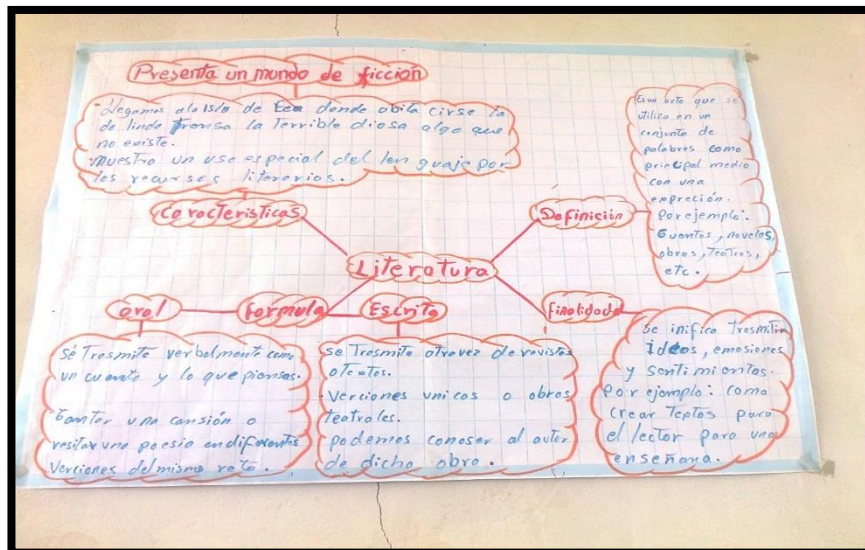 Presenta un mundo de ficción
llegamos ala isla de Eea donde abita cirse la
de linda trensa la Terrible diosa algo que
no existe.
muestra un uso especial del lenguaje por
los recursos literarios.
Caracteristicas
Es un arte que se
utiliza en un
conjunto de
palabras como
principal medio
con una
expreción.
Por ejemplo:
Cuentos, novelas,
obras, Teatros,
etc.
Definición
Literatura
oral
Formula
Escrita
Finalidad
Sé Trasmite verbalmente como
un cuento y lo que piensas.
Cantar una cansión o
resitar una poesia en diferentes
Verciones del mismo
se Trasmite atravez de revistas
Verciones unicas o obras
teatrales.
podemos conoser al autor
de dicha obra.
Se inifica trasmitir
Ideas, emosiones
y sentimientos.
Por ejemplo: como
crear Textos para
el lector para una
enseñana.